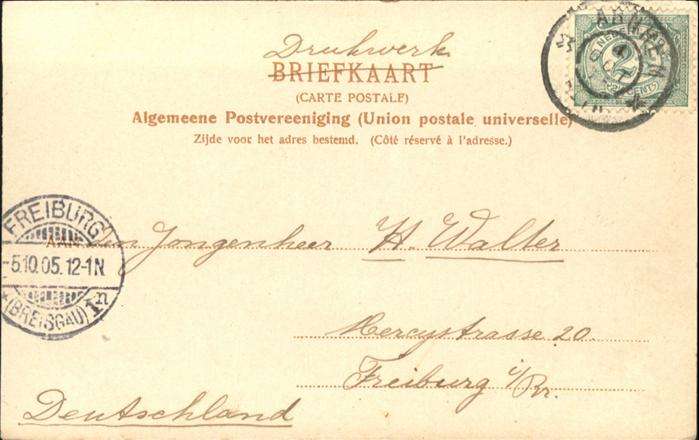 Drukwerk
BRIEFKAART
(CARTE POSTALE)
Algemeene Postvereeniging (Union postale universelle)
Zijde voor het adres bestemd. (Côté réservé à l'adresse.)
ARNHEM
4 OCT
2½
CENT
FREIBURG
-5.10.05.12-1N.
*(BREISGAU)1n
Den Jongenheer H. Walter
Mercystrasse 20.
Freiburg i/Br.
Deutschland